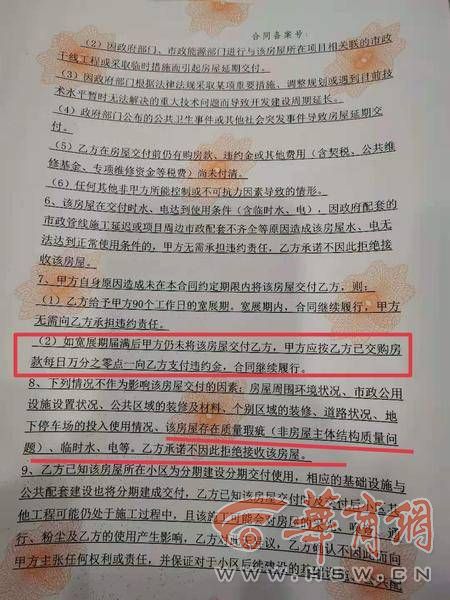 合同备案号：
（2）因政府部门、市政能源部门进行与该房屋所在项目相关联的市政
干线工程或采取临时措施而引起房屋延期交付。
（3）因政府部门根据法律法规采取某项重要措施、调整规划或遇到付前技
术水平暂时无法解决的重大技术问题而导致开发建设周期延长。
（4）政府部门公布的公共卫生事件或其他社会突发事件导致房屋延期交
付。
（5）乙方在房屋交付前仍有购房款、违约金或其他费用（含契税、公共维
修基金、专项维修资金等税费）尚未付清。
（6）任何其他非甲方所能控制或不可抗力因素导致的情形。
6、该房屋在交付时水、电达到使用条件（含临时水、电），因政府配套的
市政管线施工延迟或项目周边市政配套不齐全等原因造成该房屋水、电无
法达到正常使用条件的，甲方无需承担违约责任，乙方承诺不因此拒绝接
收该房屋。
7、甲方自身原因造成未在本合同约定期限内将该房屋交付乙方，则：
（1）乙方给予甲方90个工作日的宽展期。宽展期内，合同继续履行，甲方
无需向乙方承担违约责任。
（2）如宽展期届满后甲方仍未将该房屋交付乙方，甲方应按乙方已交购房
款每日万分之零点一向乙方支付违约金，合同继续履行。
8、下列情况不作为影响该房屋交付的因素：房屋周围环境状况、市政公用
设施设置状况、公共区域的装修及材料、个别区域的装修、道路状况、地
下停车场的投入使用情况、该房屋存在质量瑕疵（非房屋主体结构质量问
题）、临时水、电等。乙方承诺不因此拒绝接收该房屋。
9、乙方已知该房屋所在小区为分期建设分期交付使用，相应的基础设施与
公共配套建设也将分期建成交付，乙方已知该房屋交付时或交付后小区其
他工程可能仍处于施工过程中，且该施工可能会对房屋的
行、粉尘及乙方的使用产生影响，乙方对此无异议，乙方确认不因此而向
甲方主张任何权利或责任，并保证对于小区后续建设的
华商网
WWW.HSW.CN